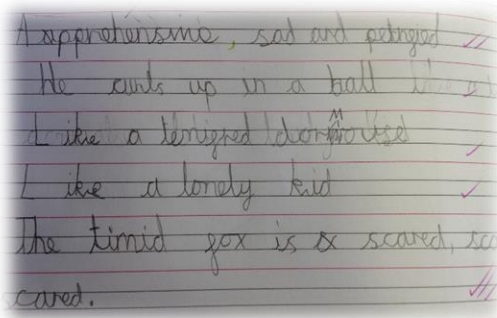 Aapprehensive, sad and petrigied
He curls up in a ball
Like a terrigied dormouse
Like a lonely kid
The timid gox is scared, sc
scared.